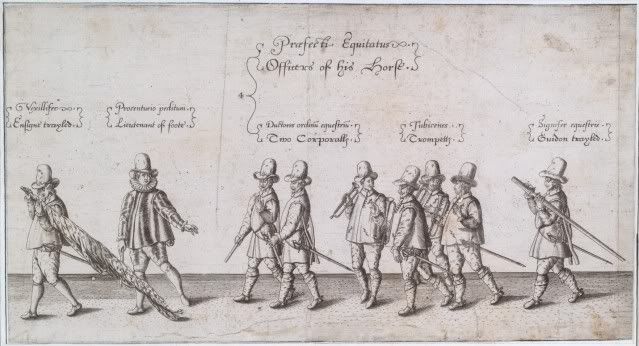 Præfecti Equitatus
Officers of his Horse.
Vexillifer
Ensigne trayled.
Procenturio peditum
Lieutenant of foote
Ductores ordinū equestriū
Two Corporalls
Tubicenes
Signifer equestris
Guidon trayled.